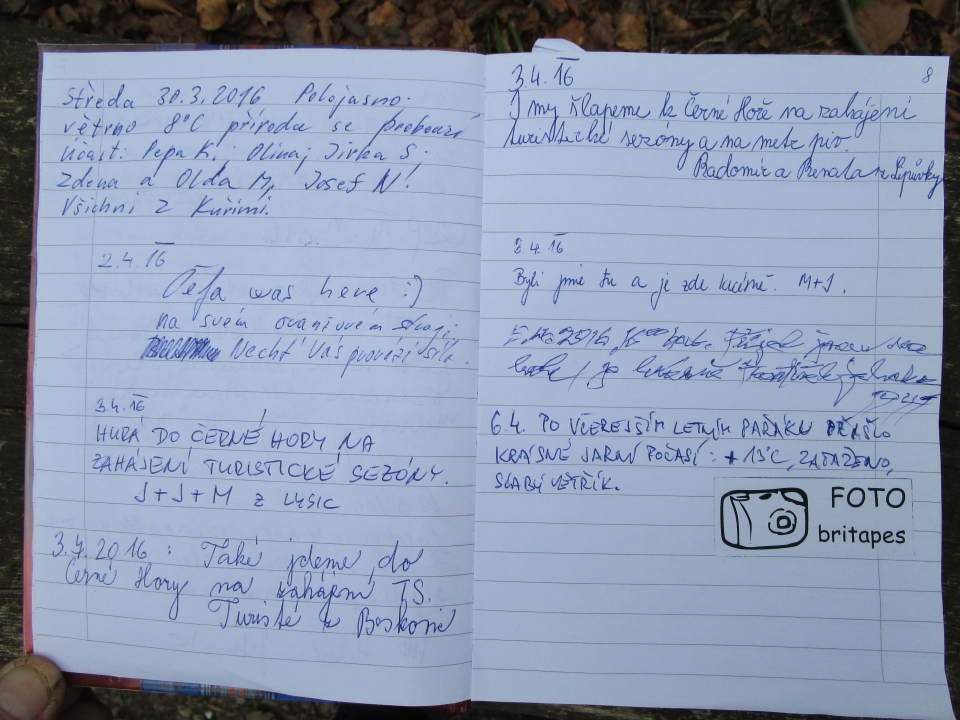 Středa 30.3.2016 Polojasno.
větrno 8°C příroda se probouzí
účast: Pepa K, Jirka S,
Zdena a Olda M, Josef N!
Všichni z Kuřimi.
2.4.16
Péťa was here :)
na svém
Nechť Vás provází síla.
3.4.16
HURÁ DO ČERNÉ HORY NA
ZAHÁJENÍ TURISTICKÉ SEZÓNY.
J+J+M z LYSIC
3.4.2016: Také jdeme do
Černé Hory na zahájení TS.
Turisté z Boskovic
8
3.4.16
I my šlapeme k Černé Hoře na zahájení
turistické sezóny a na metr piv.
Radomír a Renata z Lipůvky
3.4.16
Byli jsme tu a je zde krásně. M+J.
2016
6.4. PO VČEREJŠÍM LETNÍM PAŘÁKU PŘIŠLO
KRÁSNÉ JARNÍ POČASÍ: +13°C, ZATAŽENO,
SLABÝ VĚTŘÍK.
FOTO
britapes